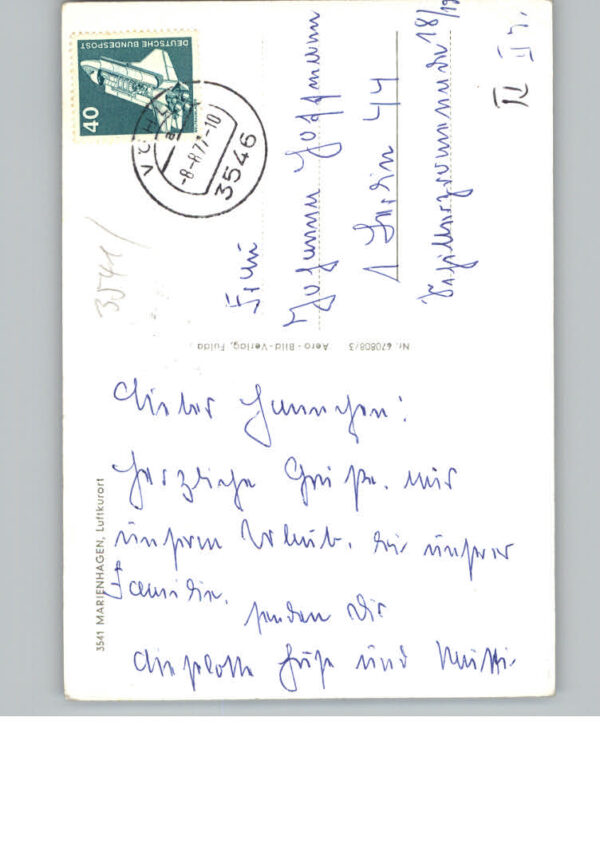 DEUTSCHE BUNDESPOST
40
3546
-8.-8.77-10
3541/
Frau
Johanna Hoffmann
1 Berlin 44
18/19
II
Nr. 670808/3 Aero-Bild-Verlag, Fulda
3541 MARIENHAGEN, Luftkurort
Liebes Hannchen!
Herzliche Grüße, aus
unserem Urlaub, die unserer
Familie, senden Dir
Lieselotte und Mutti.